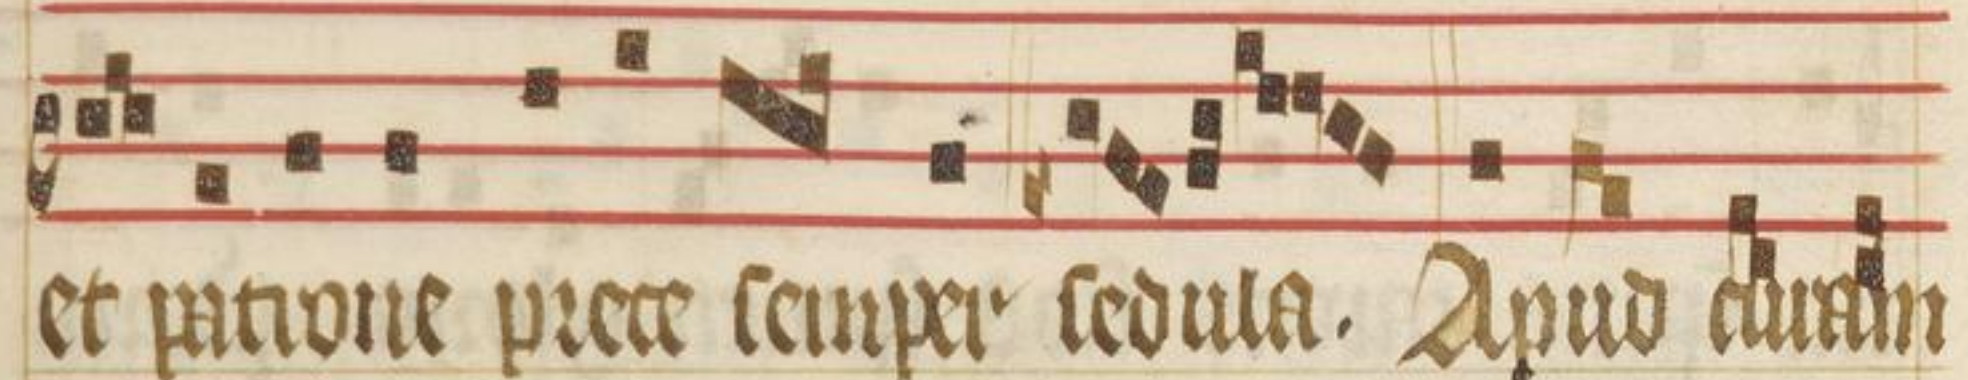 et patrone prece semper sedula. Apud duram